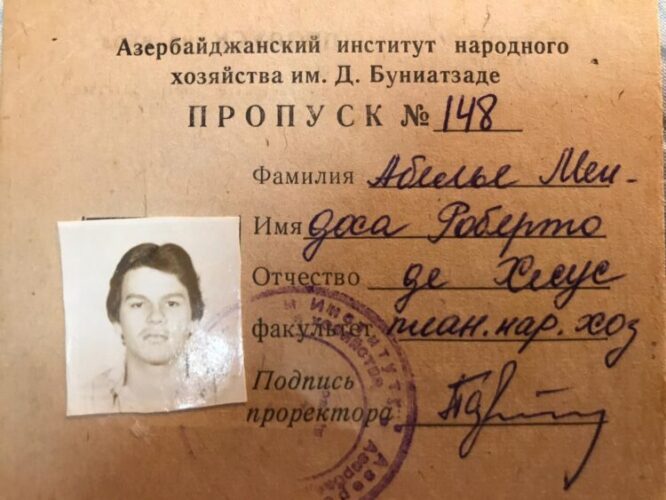 Азербайджанский институт народного
хозяйства им. Д. Буниатзаде
ПРОПУСК № 148
Фамилия Абелье Мен-
Имя доса Роберто
Отчество де Хесус
факультет план. нар. хоз
Подпись
проректора